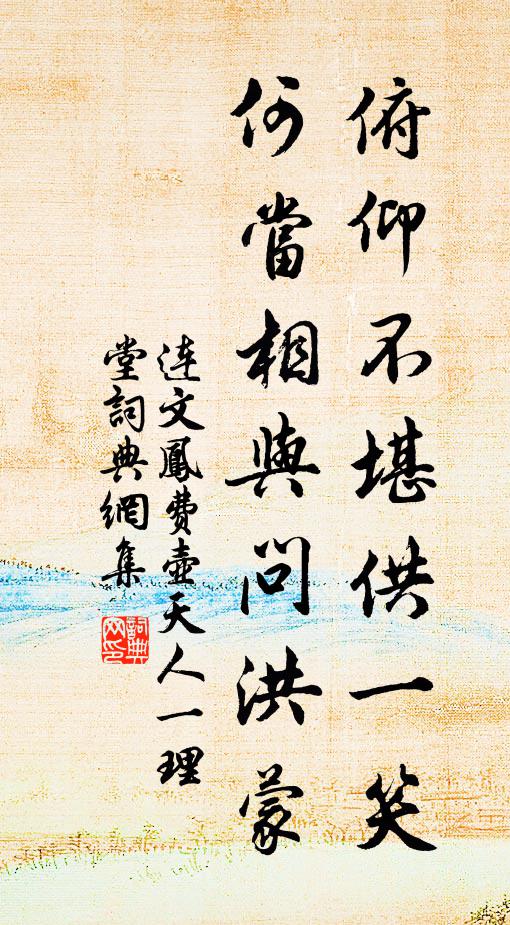 俯仰不堪供一笑
何當相與問洪蒙
連文鳳費壺天人一理
堂詞典網集
詞典
网印